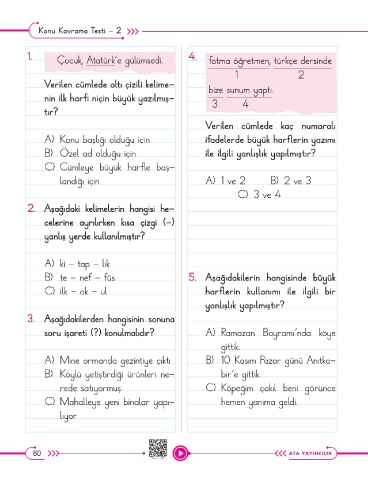 Konu Kavrama Testi - 2
1.
Çocuk, Atatürk'e gülümsedi.
Verilen cümlede altı çizili kelime-
nin ilk harfi niçin büyük yazılmış-
tır?
A) Konu başlığı olduğu için
B) Özel ad olduğu için
C) Cümleye büyük harfle baş-
landığı için
2. Aşağıdaki kelimelerin hangisi he-
celerine ayrılırken kısa çizgi (-)
yanlış yerde kullanılmıştır?
A) ki - tap - lık
B) te - nef - füs
C) ilk - ok - ul
3. Aşağıdakilerden hangisinin sonuna
soru işareti (?) konulmalıdır?
A) Mine ormanda gezintiye çıktı
B) Köylü yetiştirdiği ürünleri ne-
rede satıyormuş
C) Mahalleye yeni binalar yapı-
lıyor
4.
fatma öğretmen, türkçe dersinde
1 2
bize sunum yaptı.
3 4
Verilen cümlede kaç numaralı
ifadelerde büyük harflerin yazımı
ile ilgili yanlışlık yapılmıştır?
A) 1 ve 2 B) 2 ve 3
C) 3 ve 4
5. Aşağıdakilerin hangisinde büyük
harflerin kullanımı ile ilgili bir
yanlışlık yapılmıştır?
A) Ramazan Bayramı'nda köye
gittik.
B) 10 Kasım Pazar günü Anıtka-
bir'e gittik.
C) Köpeğim çakıl beni görünce
hemen yanıma geldi.
60
ATA YAYINCILIK